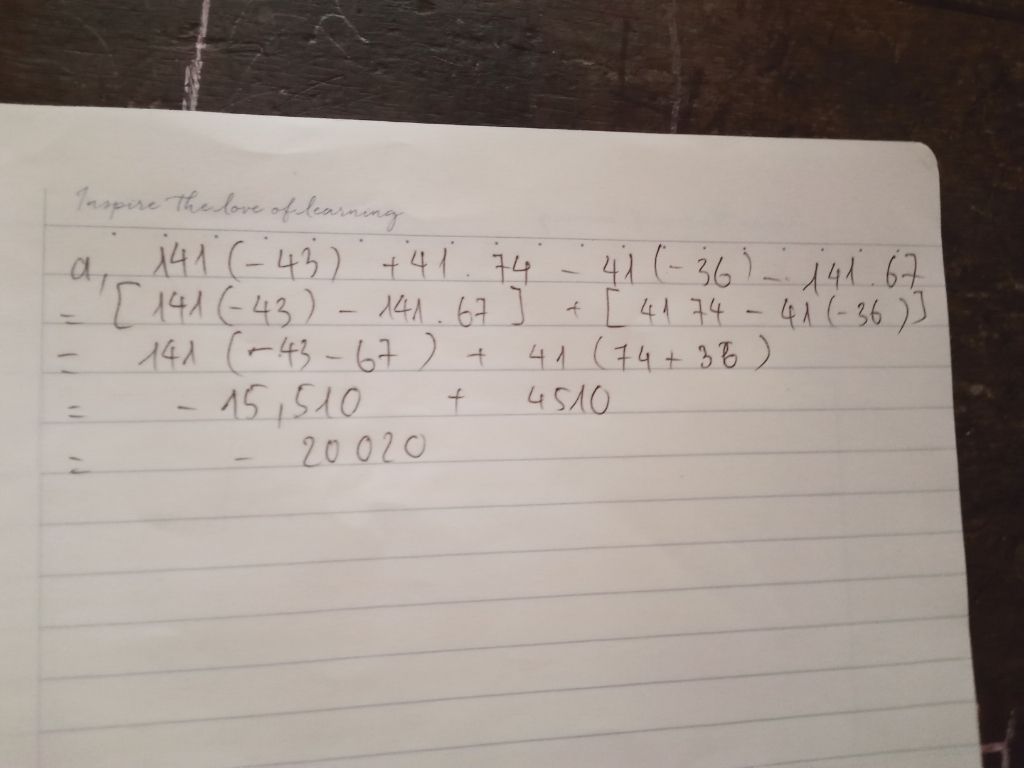 Inspire the love of learning
a, 141 (-43) + 41 . 74 - 41 (-36) - 141 . 67
= [ 141 (-43) - 141 . 67 ] + [ 41 74 - 41 (-36) ]
= 141 (-43 - 67 ) + 41 (74 + 36 )
= - 15,510 + 4510
= - 20 020